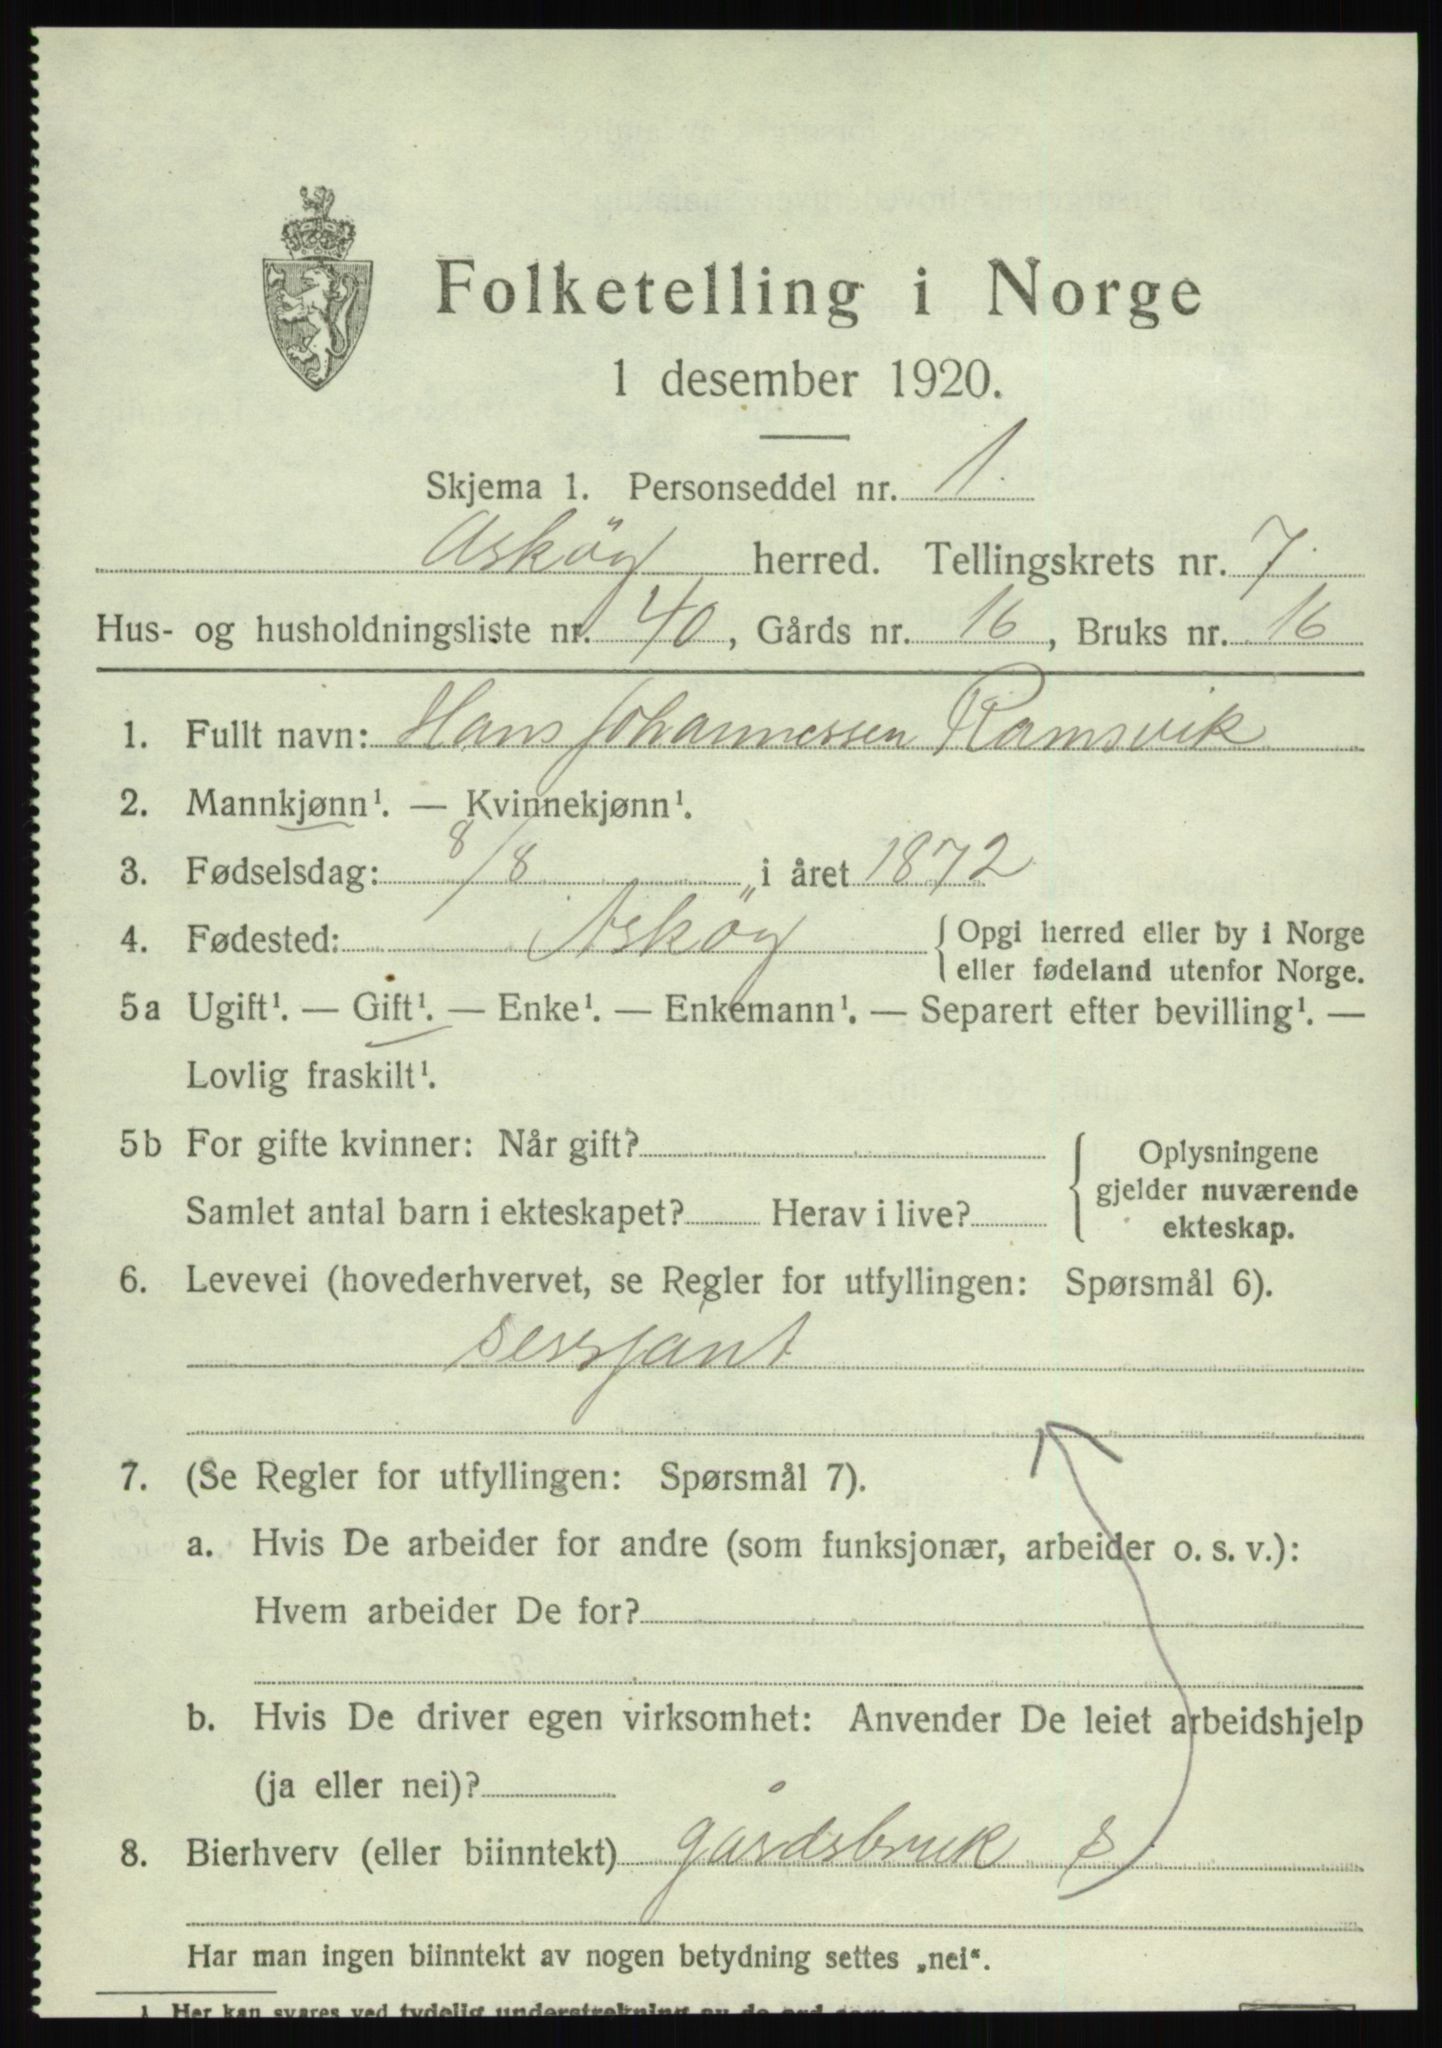 Folketelling i Norge
1 desember 1920.
Skjema 1. Personseddel nr. 1.
Asköy herred. Tellingskrets nr. 7.
Hus- og husholdningsliste nr. 40, Gårds nr. 16, Bruks nr. 16
1. Fullt navn: Hans Johannessen Ramsvik
2. Mannkjønn¹. — Kvinnekjønn¹.
3. Fødselsdag: 8/8 i året 1872
4. Fødested: Asköy { Opgi herred eller by i Norge
eller fødeland utenfor Norge.
5a Ugift¹. — Gift¹. — Enke¹. — Enkemann¹. — Separert efter bevilling¹. —
Lovlig fraskilt¹.
5b For gifte kvinner: Når gift? { Oplysningene
gjelder nuværende
Samlet antal barn i ekteskapet? Herav i live?
ekteskap.
6. Levevei (hovederhvervet, se Regler for utfyllingen: Spørsmål 6).
sersjant
7. (Se Regler for utfyllingen: Spørsmål 7).
a. Hvis De arbeider for andre (som funksjonær, arbeider o. s. v.):
Hvem arbeider De for?
b. Hvis De driver egen virksomhet: Anvender De leiet arbeidshjelp
(ja eller nei)?
8. Bierhverv (eller biinntekt) gårdsbruk s
Har man ingen biinntekt av nogen betydning settes „nei“.
1. Her kan svares ved tydelig understrekning av de ord som